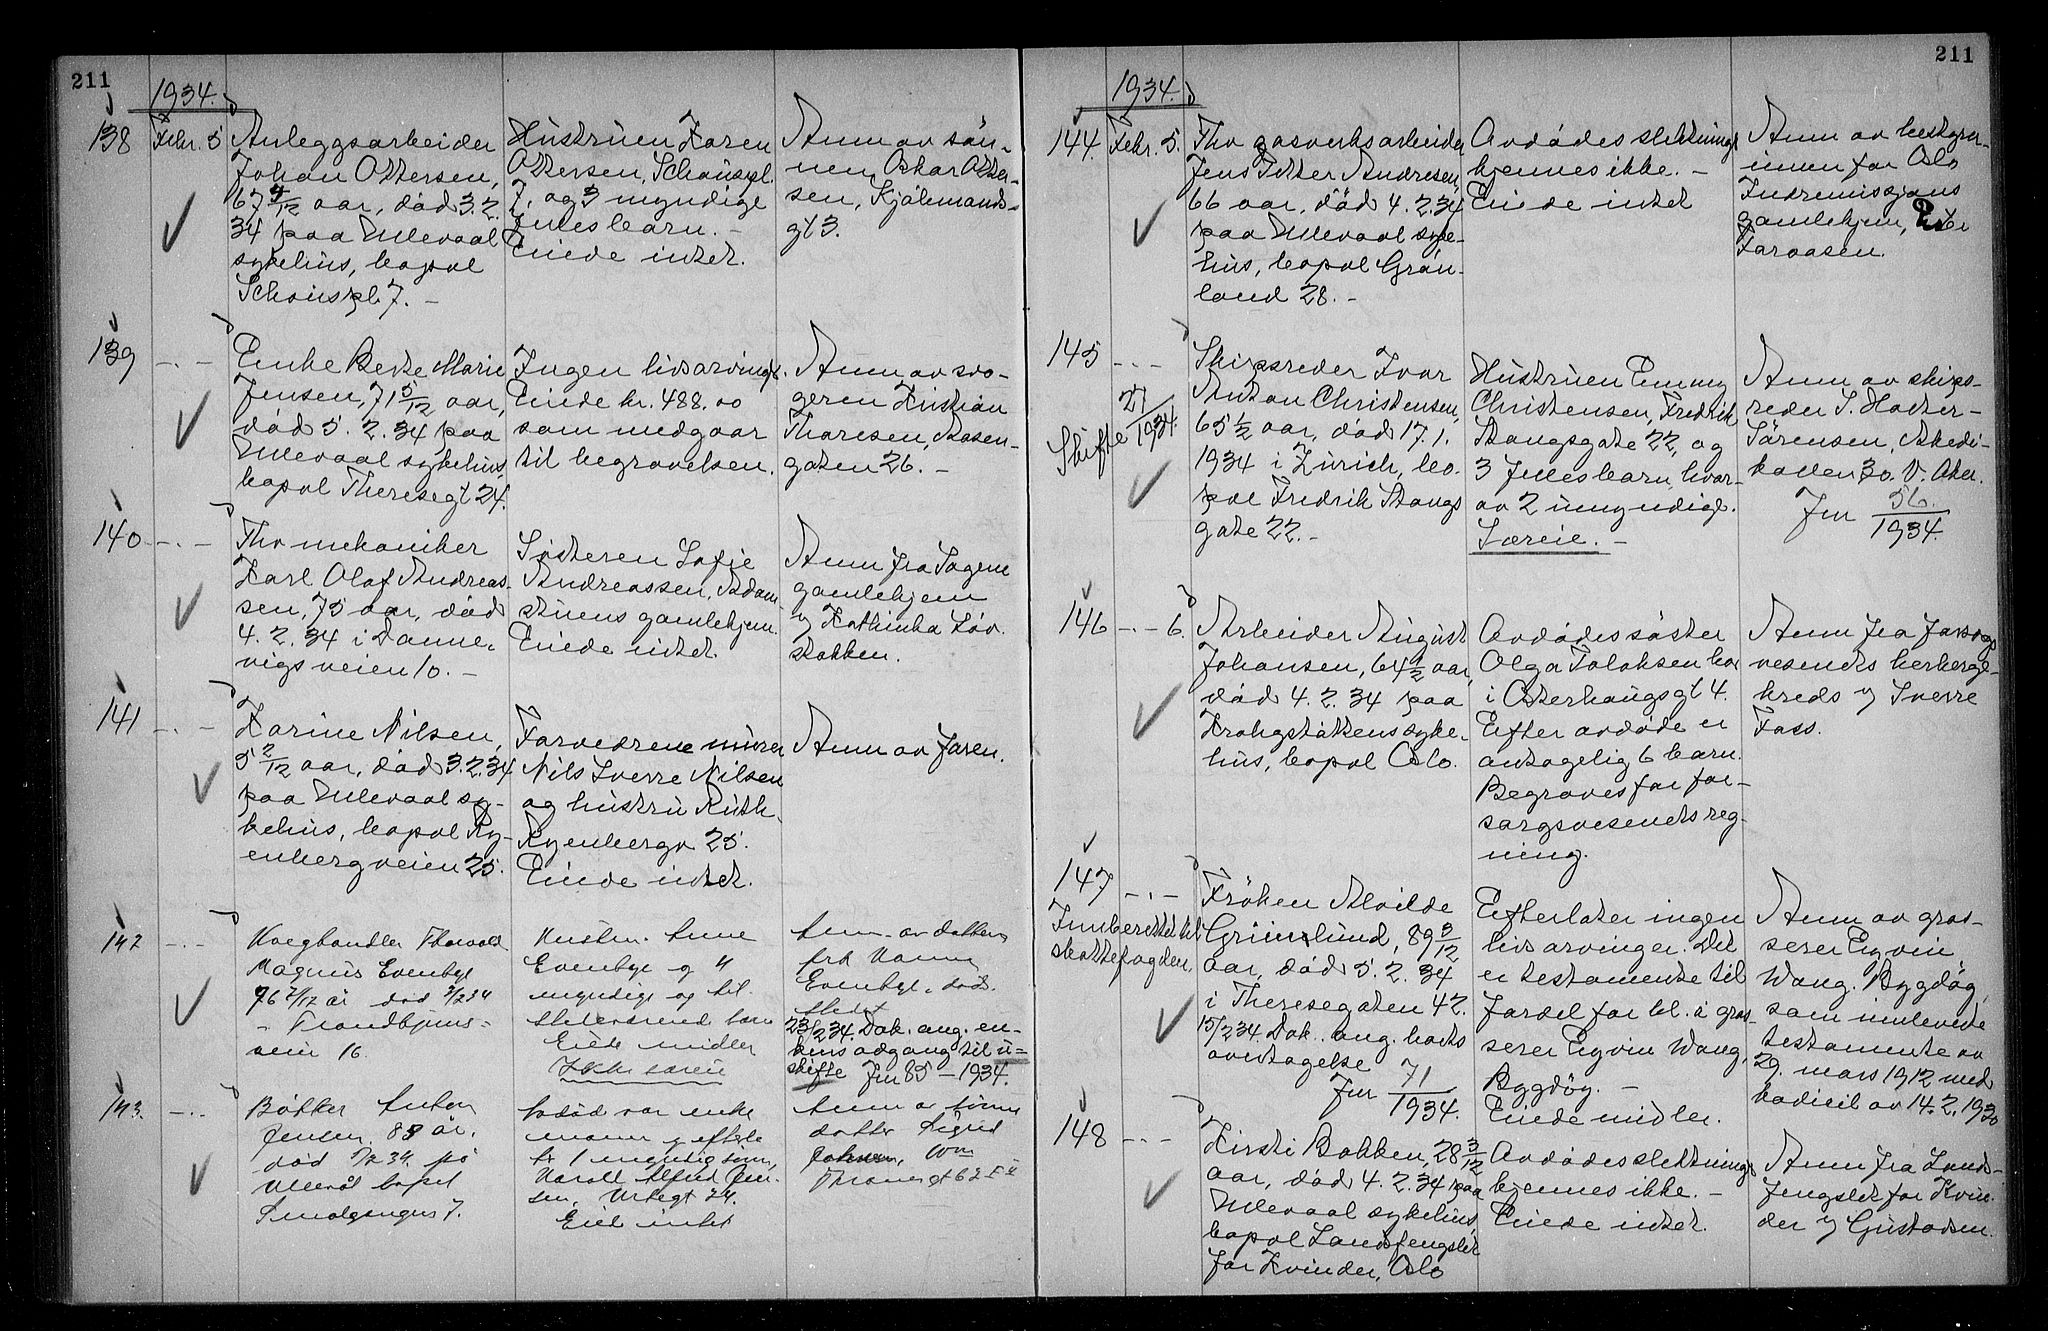 211
1934.
138
Febr. 5
Anleggsarbeider
Johan Ottersen,
67 4/12 aar, död 3.2.
34 paa Ullevaal
sykehus, bopæl
Schouspl. 7. -
Hustruen Karen
Ottersen, Schouspl.
7, og 3 myndige
fælles barn. -
Eiede intet.
Anm av sön-
nen Oskar Otter-
sen, Kjölemands-
gt 3.
139
- . -
Enke Berte Marie
Jensen, 71 5/12 aar,
död 5. 2. 34 paa
Ullevaal sykehus,
bopæl Theresegt 24.
Ingen livsarving.
Eiede kr. 488.00
som medgaar
til begravelsen.
Anm av svo-
geren Kristian
Thoresen, Aasen-
gaten 26. -
140
- . -
Fhv mekaniker
Karl Olaf Andreas-
sen, 75 aar, död
4. 2. 34 i Danne-
vigsveien 10. -
Søsteren Sofie
Andreassen, Adam-
stuens gamlehjem.
Eiede intet.
Anm fra Sagene
gamlehjem
v Kathinka Löv-
stakken.
141
- . -
Karine Nilsen,
5 2/12 aar, död 3.2.34
paa Ullevaal sy-
kehus, bopæl Ry-
enbergveien 25.
Forældrene murer
Nils Sverre Nilsen
og hustru Ruth,
Ryenbergv 25.
Eiede intet.
Anm av faren.
142
- . -
Kveghandler Thorvald
Magnus Evenbye
76 2/12 år død 3/2 34
- Trondhjems-
veien 16.
Hustru Anne
Evenbye og 4
myndige og til-
stedeværende barn
Eiede midler
Ikke særeie
Anm. av datteren
frk Nanna
Evenbye, døds-
stedet
23/2 34. Dok. ang. en-
kens adgang til u-
skifte Jnr 85 - 1934.
143.
- . -
Bøtker Anton
Jensen. 83 år.
død 5/2 34. på
Ullevål bopel
Smalgangen 7.
Avdød var enke
mann og efterlo
1 myndig sønn,
Harald Alfred Jen-
sen, Urtegt 24.
Eiet intet
Anm av sønne
datter Sigrid
Johnsen, Wm
Thranesgt 62 II
211
1934.
144.
Febr. 5.
Fhv gasverksarbeider
Jens Petter Andresen,
66 aar, död 4.2.34
paa Ullevaal syke-
hus, bopæl Grön-
land 28. -
Avdødes slektninge
kjennes ikke. -
Eiede intet
Anm av bestyrer-
innen for Oslo
Indremissjons
gamlehjem,
Faraasen.
145
- . -
Skifte 27/1934.
Skipsreder Ivar
Anton Christensen,
65 1/2 aar, död 17.1.
1934 i Zürich, bo-
pæl Fredrik Stangs
gate 22. -
Hustruen Emmy
Christensen, Fredrik
Stangsgate 22, og
3 fellesbarn, hvor-
av 2 umyndige.
Særeie. -
Anm av skips-
reder S. Hotter-
Sörensen, Skedi-
kollen 30. V. Aker.
Jnr 56/1934.
146
- . - 6.
Arbeider August
Johansen, 64 1/2 aar,
död 4. 2. 34 paa
Krohgstöttens syke-
hus, bopæl Oslo.
Avdödes söster
Olga Tolaksen bor
i Osterhausgt 4.
Efter avdöde er
antagelig 6 barn.
Begraves for for-
sorgsvesenets reg-
ning.
Anm fra forsorgs
vesenets herberge-
kreds v Sverre
Foss.
147
- . -
Innberettet til
skattefogden.
Fröken Alvilde
Grünlund, 89 3/12
aar, död 5. 2. 34
i Theresegaten 42.
15/2 34. Dok. ang. boets
overtagelse
Jnr 71/1934.
Efterlater ingen
livsarvinger. Det
er testamente til
fordel for bl. a gros-
serer Eyvin Wang,
Bygdöy. -
Eiede midler.
Anm av gros-
serer Eyvin
Wang. Bygdöy,
som innleverte
testamente av
29. mars 1912 med
kodicil av 14.2.1930
148
- . -
Kirsti Bakken, 28 3/12
aar, död 4. 2. 34 paa
Ullevaal sykehus,
bopæl Landsfengslet
for Kvinder, Oslo
Avdödes slektninge
kjennes ikke. -
Eiede intet.
Anm fra Lands-
fengslet for Kvin-
der v Gustavsen.